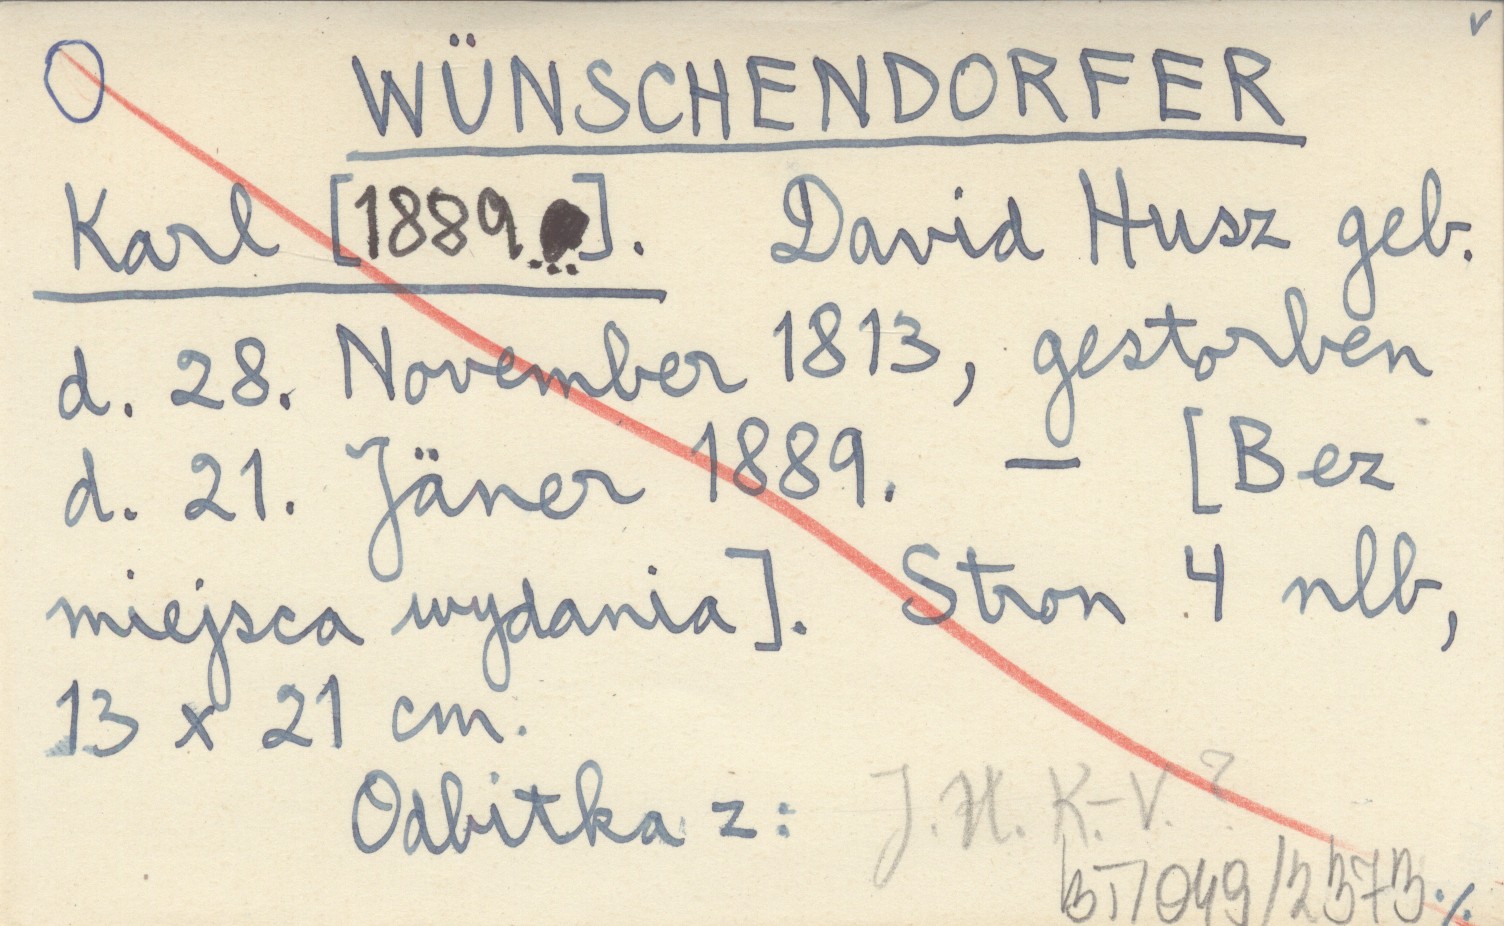 WÜNSCHENDORFER
Karl [1889...]. David Husz geb.
d. 28. November 1813, gestorben
d. 21. Jäner 1889. — [Bez
miejsca wydania]. Stron 4 nlb,
13 x 21 cm.
Odbitka z: J. H. K.-V.?
BT/049/2373 ./.